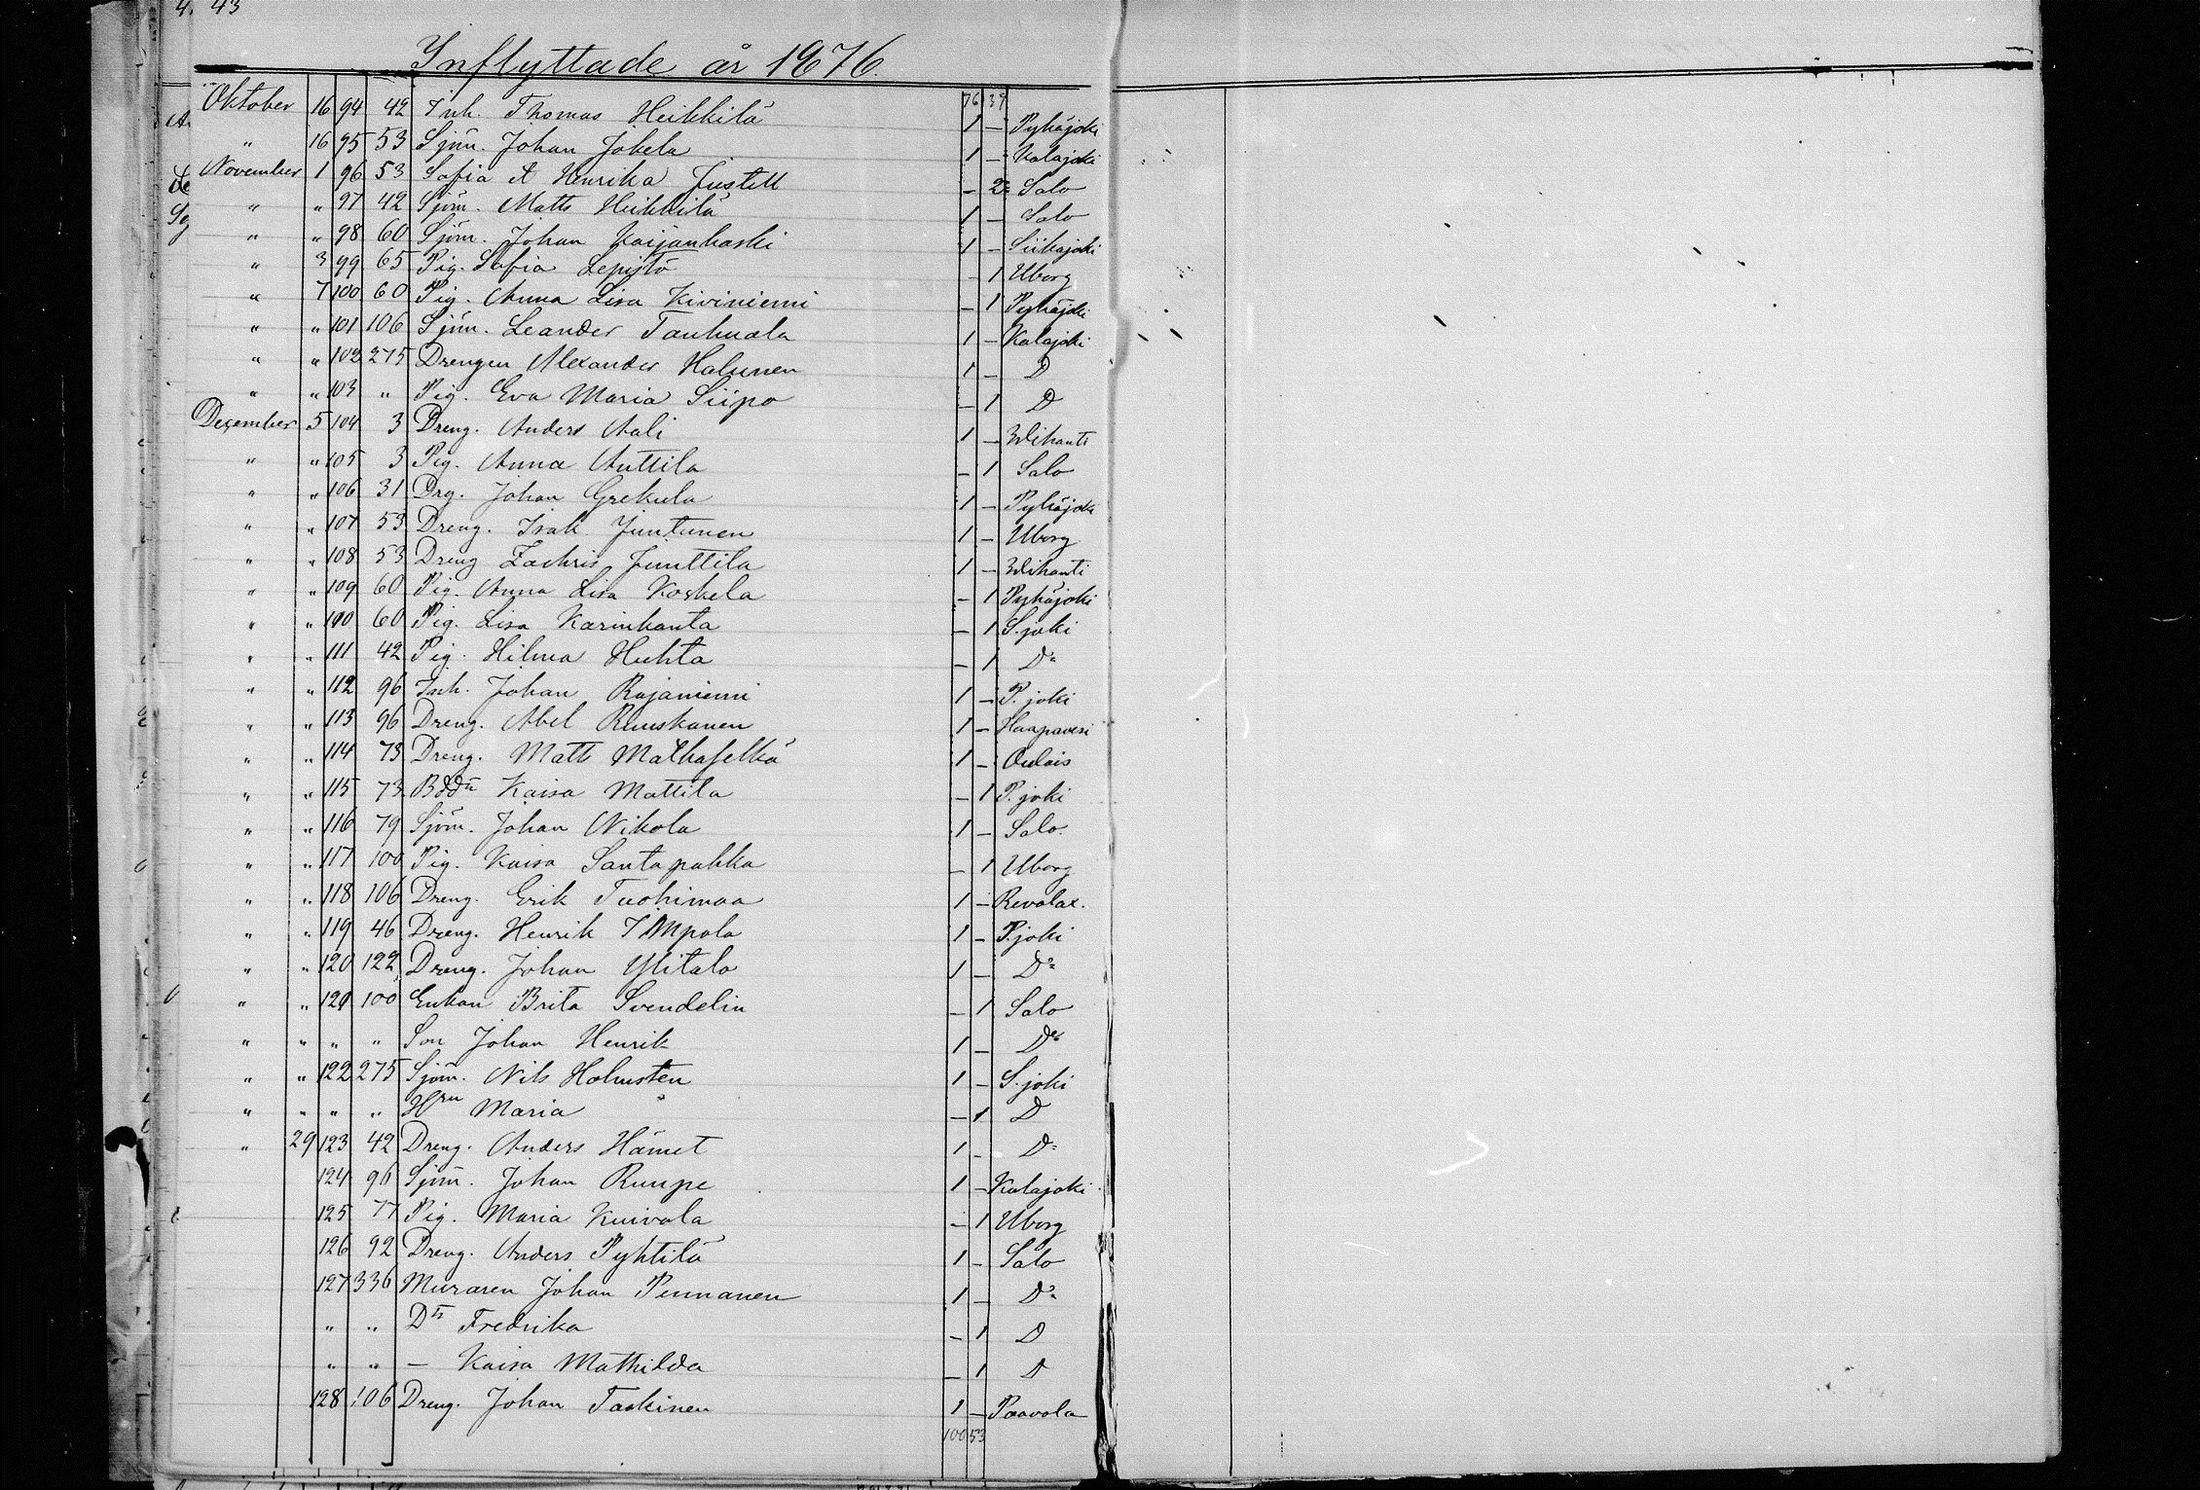 43
Inflyttade år 1876.
76 39
Oktober 16 94 42 Inh. Thomas Heikkilä 1 – Pyhäjoki
" 16 95 53 Sjöm. Johan Jokela 1 – Kalajoki
November 1 96 53 Sofia et Henrika Justell – 2 Salo
" " 97 42 Sjöm. Matts Heikkilä 1 – Salo
" " 98 60 Sjöm. Johan Kaijankoski 1 – Siikajoki
" 3 99 65 Pig. Sofia Lepistö – 1 Uborg
" 7 100 60 Pig. Anna Lisa Kiviniemi – 1 Pyhäjoki
" " 101 106 Sjöm. Leander Tanhuala 1 – Kalajoki
" " 102 275 Drengen Alexander Halunen 1 – D
" " 103 " Pig. Eva Maria Siipo – 1 D
December 5 104 3 Dreng. Anders Aali 1 – Wihanti
" " 105 3 Pig. Anna Anttila – 1 Salo
" " 106 31 Drg. Johan Grekula 1 – Pyhäjoki
" " 107 53 Dreng. Isak Juntunen 1 – Uborg
" " 108 53 Dreng Zachris Junttila 1 – Wihanti
" " 109 60 Pig. Anna Lisa Koskela – 1 Pyhäjoki
" " 110 60 Pig. Lisa Karinkanta – 1 S.joki
" " 111 42 Pig. Hilma Huhta – 1 D:
" " 112 96 Inh. Johan Rajaniemi 1 – P. joki
" " 113 96 Dreng. Abel Ruuskanen 1 – Haapavesi
" " 114 73 Dreng. Matts Matkaselkä 1 – Oulais
" " 115 73 Kaisa Mattila – 1 P. joki
" " 116 79 Sjöm. Johan Nikola 1 – Salo.
" " 117 100 Pig. Kaisa Santapakka – 1 Uborg
" " 118 106 Dreng. Erik Tuohimaa 1 – Revolax.
" " 119 46 Dreng. Henrik Impola 1 – P.joki
" " 120 122 Dreng. Johan Ylitalo 1 – D:
" " 121 100 Enkan Brita Svendelin – 1 Salo
" " " " Son Johan Henrik 1 – D:
" " 122 275 Sjöm. Nils Holmsten 1 – S.joki
" " " " Hru Maria " – 1 D
" 29 123 42 Dreng. Anders Hämet 1 – D:
124 96 Sjöm. Johan Ruupe 1 – Kalajoki
125 77 Pig. Maria Kuivala – 1 Uborg
126 92 Dreng. Anders Pyhtilä 1 – Salo
127 336 Muraren Johan Pennanen 1 – D:
" " Dtr Fredrika – 1 D
" " – Kaisa Mathilda – 1 D
128 106 Dreng. Johan Taskinen 1 – Paavola
100 53